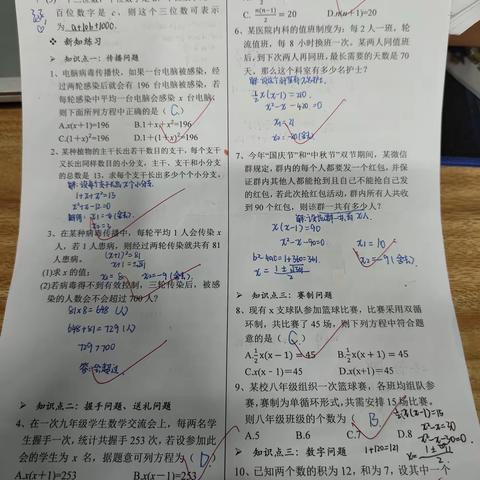 百位数字是 c，则这个三位数可表示
为 a+10b+100c.
❖ 新知练习
➢ 知识点一：传播问题
1、电脑病毒传播快，如果一台电脑被感染，经
过两轮感染后就会有 196 台电脑被感染，若
每轮感染中平均一台电脑会感染 x 台电脑，
则下面所列方程中正确的是（ C ）
A.x(1+x)=196 B.1+x+x²=196
C.(1+x)²=196 D.1+(1+x)²=196
2、某种植物的主干长出若干数目的支干，每个支干
又长出同样数目的小分支，主干、支干和小分支
的总数是 13，求每个支干长出多少个小分支.
1+x+x²=13
x²+x-12=0
x₂=3
3、在某种病毒传播中，每轮平均 1 人会传染 x
人，若 1 人患病，则经过两轮传染就共有 81
人患病.
(x+1)²=81
x+1=±√81
(1)求 x 的值； x₁=8 x₂=-9(舍去)
(2)若病毒得不到有效控制，三轮传染后，被感
染的人数会不会超过 700 人？
81×8=648(人)
648+81=729(人)
729>700
答:会超过
➢ 知识点二：握手问题、送礼问题
4、在一次九年级学生数学交流会上，每两名学
生握手一次，统计共握手 253 次，若设参加此
会的学生为 x 名，据题意可列方程为（ D ）
A.x(x+1)=253 B.x(x-1)=253
C. n(n-1)/2 = 20 D.n(n+1)=20
6、某医院内科的值班制度为：每 2 人一班，轮
流值班，每 8 小时换班一次，某两人同值班
后，到下次两人再同班，最长需要的天数是 70
天，那么这个科室有多少名护士？
½x(x-1)=210
x²-x-420=0
x₁=21
x₂=-20(舍去)
7、今年“国庆节”和“中秋节”双节期间，某微信
群规定，群内的每个人都要发一个红包，并保
证群内其他人都能抢到且自己不能抢自己发
的红包，若此次抢红包活动，群内所有人共收
到 90 个红包，则该群一共有多少人？
x(x-1)=90
x²-x-90=0 x₁=10
b²-4ac=1+360=361 x₂=-9(舍去)
➢ 知识点三：赛制问题
8、现有 x 支球队参加篮球比赛，比赛采用双循
环制，共比赛了 45 场，则下列方程中符合题
意的是（ C ）
A.½x(x-1)=45 B.½x(x+1)=45
C.x(x-1)=45 D.x(x+1)=45
9、某校八年级组织一次篮球赛，各班均组队参
赛，赛制为单循环形式，共需安排 15 场比赛，
则八年级班级的个数为（ B ） ½x(x-1)=15
A.5 B.6 C.7 D.8 x²-x=30
x²-x-30=0
➢ 知识点三：数字问题 1+120=121
10、已知两个数的积为 12，和为 7，设其中一个